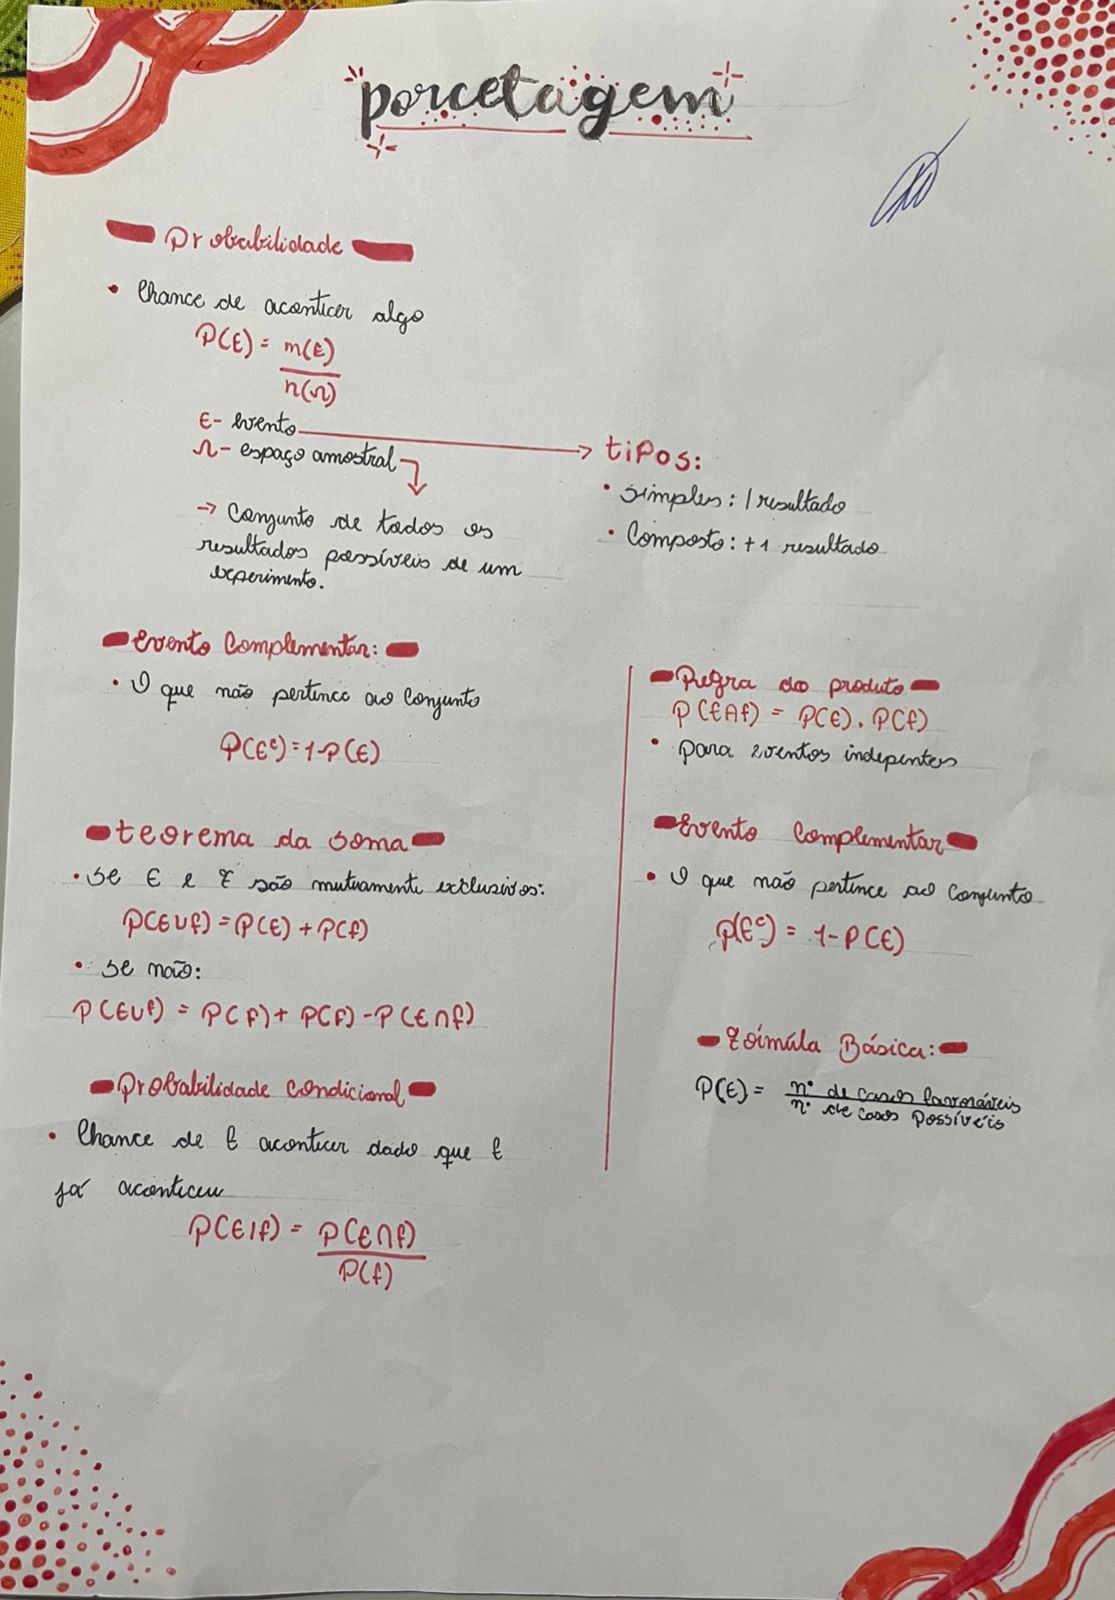 porcetagem
Probabilidade
• Chance de aconticer algo
P(E) = n(E)
n(Ω)
E- evento
Ω- espaço amostral
→ Conjunto de todos os
resultados possíveis de um
experimento.
tipos:
• simples: 1 resultado
• Composto: +1 resultado
Evento Complementar:
• O que não pertence ao Conjunto
P(Eᶜ)=1-P(E)
teorema da soma
• se E e F são mutuamente exclusivos:
P(E∪f) = P(E) + P(f)
• se não:
P(E∪f) = P(F) + P(F) - P(E∩f)
Probabilidade condicional
• Chance de E aconticer dado que E
já aconticeu
P(E|f) = P(E∩f)
P(f)
Regra do produto
P(E∩f) = P(E) . P(f)
• para eventos indepentes
Evento Complementar
• O que não pertence ao Conjunto
P(Eᶜ) = 1-P(E)
Fóimúla Básica:
P(E) = nº de casos favoráveis
nº de casos possíveis